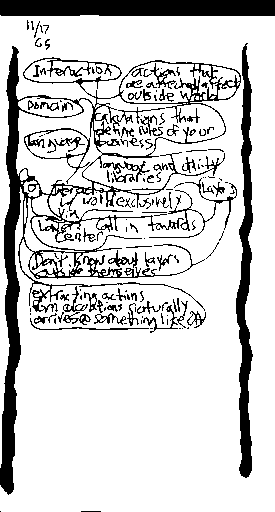 11/17
65
Interaction
actions that
are affected/affect
outside world
Domain
Calculations that
define rules of your
business
language
language and utility
libraries
Interaction
Layers
world exclusively
via
Layers call in towards
center
Don't know about layers
outside themselves
extracting actions
from calculations naturally
arrives @ something like OA